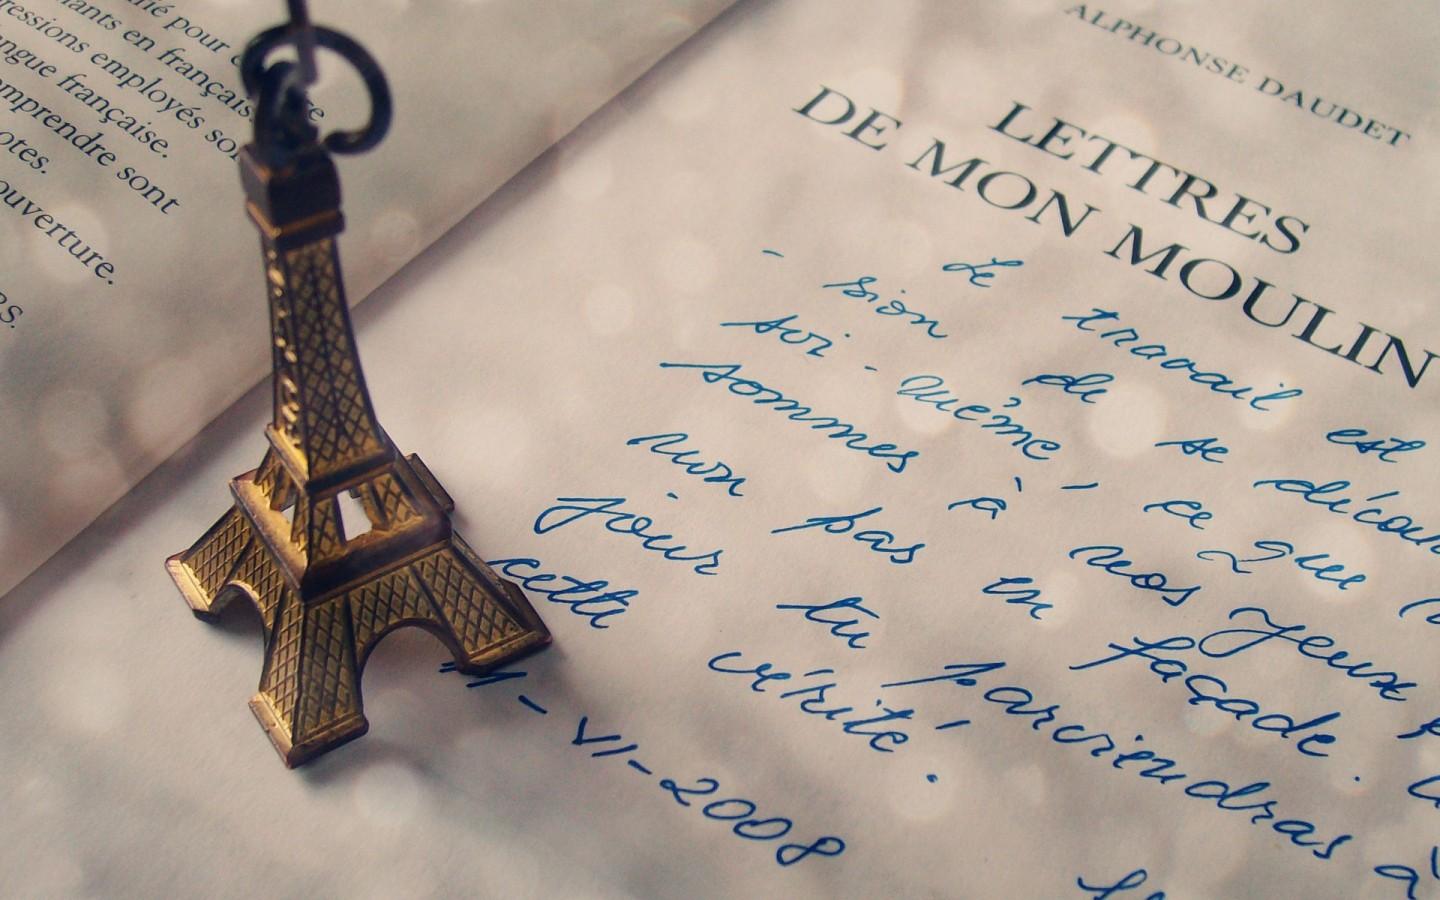 pour
en français
employés
langue française.
comprendre sont
notes.
couverture.
ALPHONSE DAUDET
LETTRES
DE MON MOULIN
- Le travail est
sion de se découv
soi-même, ce que n
sommes à nos yeux
non pas en façade.
jour tu parviendras à
cette vérité.
- VI - 2008